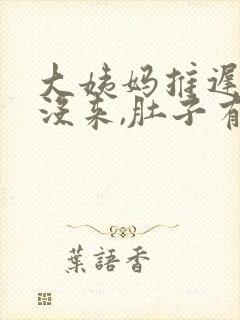 大姨妈推迟
没来,肚子有
葉語香